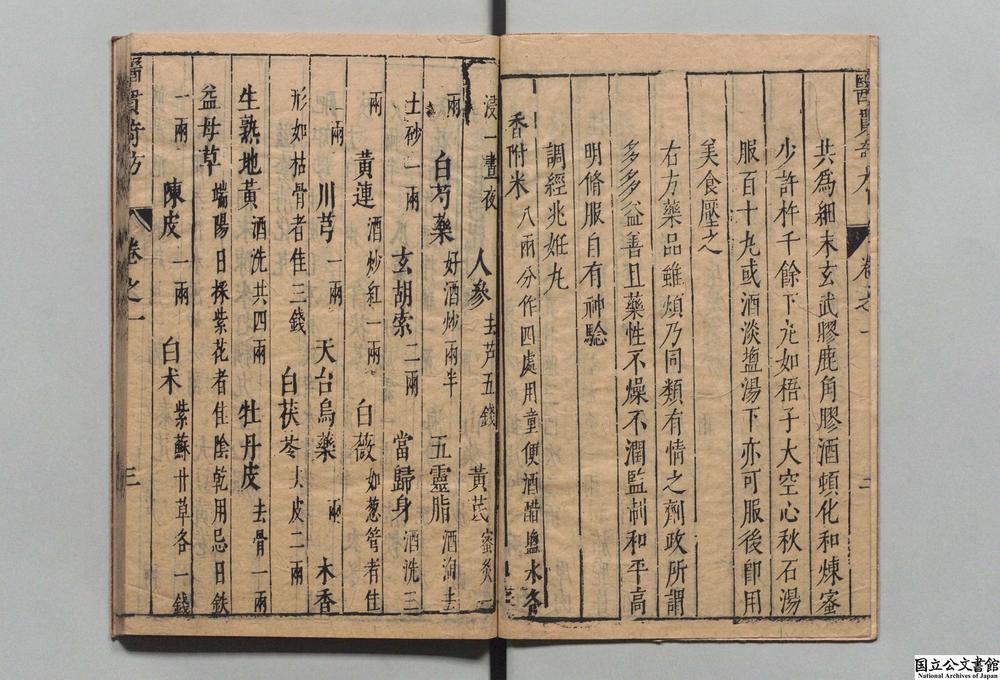 共為細末玄武膠鹿角膠酒頓化和煉蜜
少許杵千餘下充如梧子大空心秋石湯
服百十九或酒淡塩湯下亦可服後卽用
美食壓之
右方藥品雖煩乃同類有情之劑政所謂
多多益善且藥性不燥不潤監制和平高
明脩服自有神騐
調經兆姙丸
香附米 八兩分作四處用童便酒醋塩水各
浸一晝夜 人參 去芦五錢 黃芪 蜜炙一
兩 白芍藥 好酒炒兩半 五靈脂 酒淘去
土砂一兩 玄胡索 二兩 當歸身 酒洗三
兩 黃連 酒炒紅一兩 白薇 如葱管者佳
一兩 川芎 一兩 天台烏藥 一兩 木香
形如枯骨者佳三錢 白茯苓 去皮二兩
生熟地黃 酒洗共四兩 牡丹皮 去骨一兩
益母草 端陽日採紫花者佳陰乾用忌日鉄
一兩 陳皮 一兩 白术 紫蘇 甘草各一錢
卷之一
三
国立公文書館
National Archives of Japan